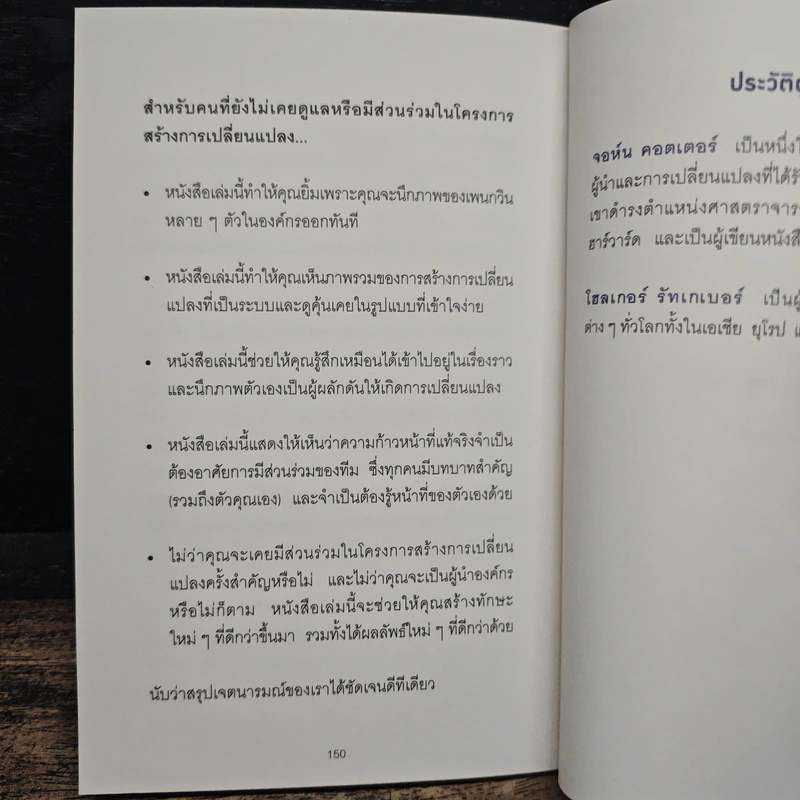 สำหรับคนที่ยังไม่เคยดูแลหรือมีส่วนร่วมในโครงการ
สร้างการเปลี่ยนแปลง...
• หนังสือเล่มนี้ทำให้คุณยิ้มเพราะคุณจะนึกภาพของเพนกวิน
หลาย ๆ ตัวในองค์กรออกทันที
• หนังสือเล่มนี้ทำให้คุณเห็นภาพรวมของการสร้างการเปลี่ยน
แปลงที่เป็นระบบและดูคุ้นเคยในรูปแบบที่เข้าใจง่าย
• หนังสือเล่มนี้ช่วยให้คุณรู้สึกเหมือนได้เข้าไปอยู่ในเรื่องราว
และนึกภาพตัวเองเป็นผู้ผลักดันให้เกิดการเปลี่ยนแปลง
• หนังสือเล่มนี้แสดงให้เห็นว่าความก้าวหน้าที่แท้จริงจำเป็น
ต้องอาศัยการมีส่วนร่วมของทีม ซึ่งทุกคนมีบทบาทสำคัญ
(รวมถึงตัวคุณเอง) และจำเป็นต้องรู้หน้าที่ของตัวเองด้วย
• ไม่ว่าคุณจะเคยมีส่วนร่วมในโครงการสร้างการเปลี่ยน
แปลงครั้งสำคัญหรือไม่ และไม่ว่าคุณจะเป็นผู้นำองค์กร
หรือไม่ก็ตาม หนังสือเล่มนี้จะช่วยให้คุณสร้างทักษะ
ใหม่ ๆ ที่ดีกว่าขึ้นมา รวมทั้งได้ผลลัพธ์ใหม่ ๆ ที่ดีกว่าด้วย
นับว่าสรุปเจตนารมณ์ของเราได้ชัดเจนดีทีเดียว
150
ประวัติ
จอห์น คอตเตอร์ เป็นหนึ่ง
ผู้นำและการเปลี่ยนแปลงที่ได้
เขาดำรงตำแหน่งศาสตราจาร
ฮาร์วาร์ด และเป็นผู้เขียนหนังสือ
โฮลเกอร์ รัทเกเบอร์ เป็น
ต่าง ๆ ทั่วโลกทั้งในเอเชีย ยุโรป